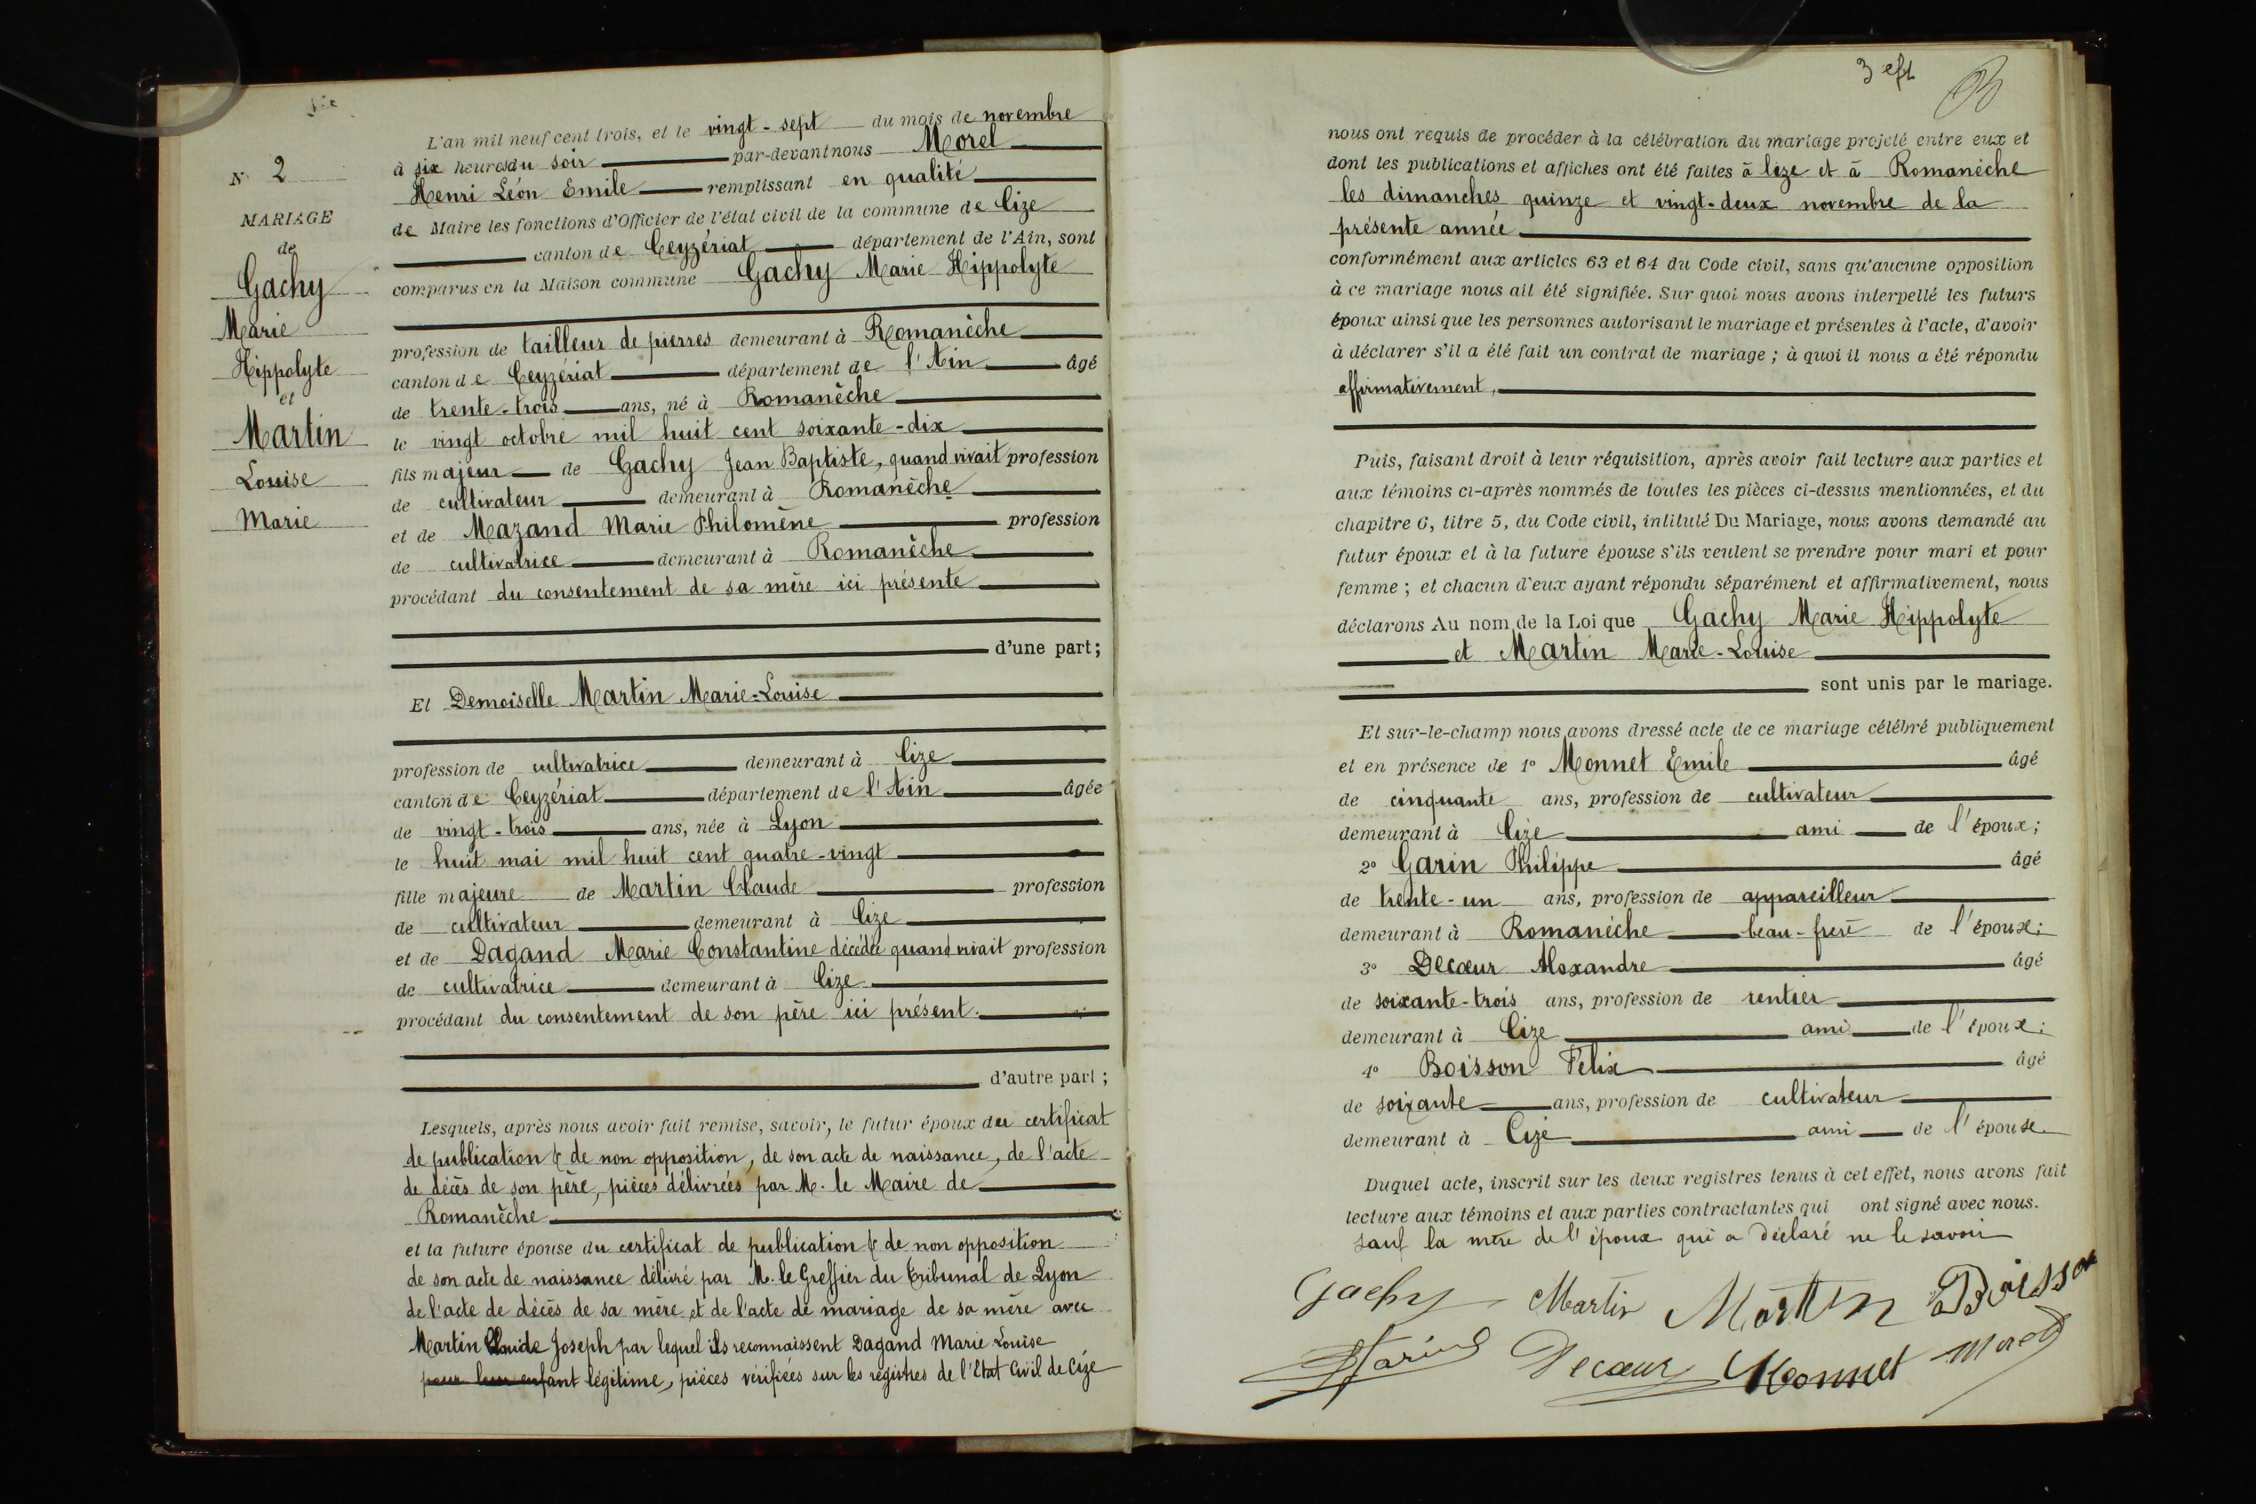 N° 2
MARIAGE
de
Gachy
Marie
Hippolyte
et
Martin
Louise
Marie
L'an mil neuf cent trois, et le vingt-sept du mois de novembre
à six heures du soir par-devant nous Morel
Henri Léon Emile remplissant en qualité
de Maire les fonctions d'Officier de l'état civil de la commune de Cize
canton de Ceyzériat département de l'Ain, sont
comparus en la Maison commune Gachy Marie Hippolyte
profession de tailleur de pierres demeurant à Romanèche
canton de Ceyzériat département de l'Ain âgé
de trente-trois ans, né à Romanèche
le vingt octobre mil huit cent soixante-dix
fils majeur de Gachy Jean Baptiste, quand vivait profession
de cultivateur demeurant à Romanèche
et de Mazand Marie Philomène profession
de cultivatrice demeurant à Romanèche
procédant du consentement de sa mère ici présente
d'une part;
Et Demoiselle Martin Marie-Louise
profession de cultivatrice demeurant à Cize
canton de Ceyzériat département de l'Ain âgée
de vingt-trois ans, née à Lyon
le huit mai mil huit cent quatre-vingt
fille majeure de Martin Claude profession
de cultivateur demeurant à Cize
et de Dagand Marie Constantine décédée quand vivait profession
de cultivatrice demeurant à Cize
procédant du consentement de son père ici présent.
d'autre part;
Lesquels, après nous avoir fait remise, savoir, le futur époux du certificat
de publication & de non opposition, de son acte de naissance, de l'acte
de décès de son père, pièces délivrées par M. le Maire de
Romanèche
et la future épouse du certificat de publication & de non opposition
de son acte de naissance délivré par M. le Greffier du Tribunal de Lyon
de l'acte de décès de sa mère et de l'acte de mariage de sa mère avec
Martin Claude Joseph par lequel ils reconnaissent Dagand Marie Louise
pour leur enfant légitime, pièces vérifiées sur les registres de l'Etat Civil de Cize
3 eft
nous ont requis de procéder à la célébration du mariage projeté entre eux et
dont les publications et affiches ont été faites à Cize et à Romanèche
les dimanches quinze et vingt-deux novembre de la
présente année
conformément aux articles 63 et 64 du Code civil, sans qu'aucune opposition
à ce mariage nous ait été signifiée. Sur quoi nous avons interpellé les futurs
époux ainsi que les personnes autorisant le mariage et présentes à l'acte, d'avoir
à déclarer s'il a été fait un contrat de mariage; à quoi il nous a été répondu
affirmativement,
Puis, faisant droit à leur réquisition, après avoir fait lecture aux parties et
aux témoins ci-après nommés de toutes les pièces ci-dessus mentionnées, et du
chapitre 6, titre 5, du Code civil, intitulé Du Mariage, nous avons demandé au
futur époux et à la future épouse s'ils veulent se prendre pour mari et pour
femme; et chacun d'eux ayant répondu séparément et affirmativement, nous
déclarons Au nom de la Loi que Gachy Marie Hippolyte
et Martin Marie-Louise
sont unis par le mariage.
Et sur-le-champ nous avons dressé acte de ce mariage célébré publiquement
et en présence de 1° Monnet Emile âgé
de cinquante ans, profession de cultivateur
demeurant à Cize ami de l'époux;
2° Garin Philippe âgé
de trente-un ans, profession de appareilleur
demeurant à Romanèche beau-frère de l'époux;
3° Decœur Alexandre âgé
de soixante-trois ans, profession de rentier
demeurant à Cize ami de l'époux;
4° Boisson Félix âgé
de soixante ans, profession de cultivateur
demeurant à Cize ami de l'épouse
Duquel acte, inscrit sur les deux registres tenus à cet effet, nous avons fait
lecture aux témoins et aux parties contractantes qui ont signé avec nous.
sauf la mère de l'époux qui a déclaré ne le savoir
Gachy Martin Martin Boisson
Garin Decœur Monnet Morel